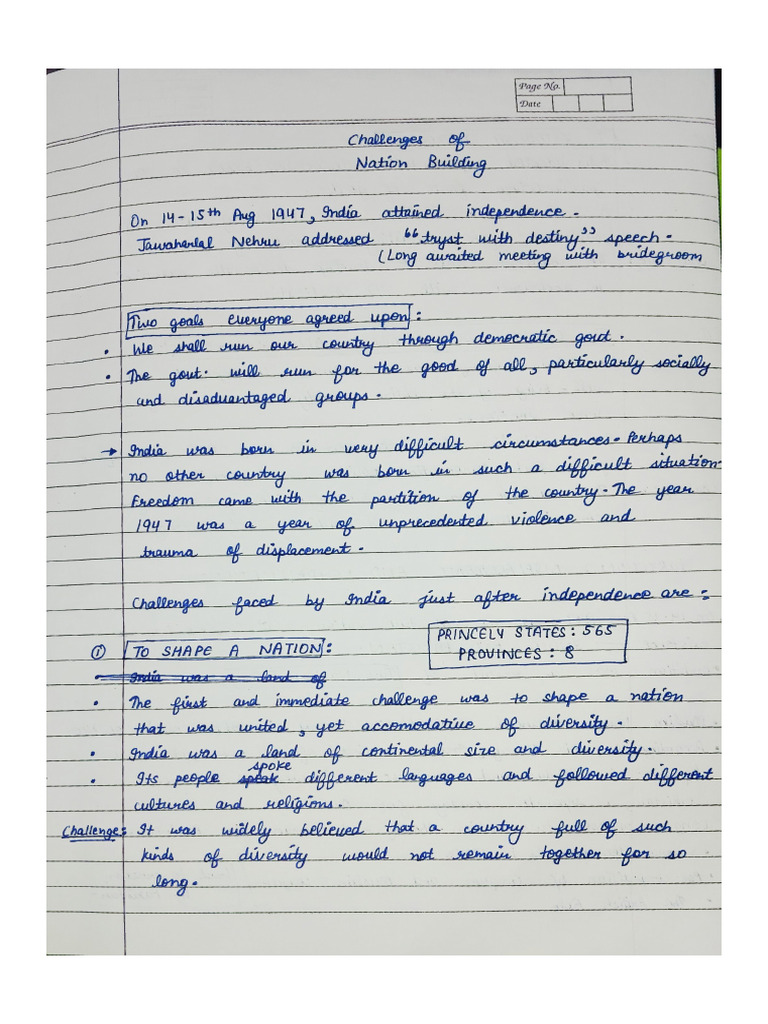 Page No.
Date
Challenges of
Nation Building
On 14-15th Aug 1947, India attained independence.
Jawaharlal Nehru addressed "tryst with destiny" speech.
(Long awaited meeting with bridegroom
Two goals everyone agreed upon:
• We shall run our country through democratic govt.
• The govt. will run for the good of all, particularly socially
and disadvantaged groups.
→ India was born in very difficult circumstances. Perhaps
no other country was born in such a difficult situation.
Freedom came with the partition of the country. The year
1947 was a year of unprecedented violence and
trauma of displacement.
Challenges faced by India just after independence are:
PRINCELY STATES: 565
① TO SHAPE A NATION:
PROVINCES: 8
• India was a land of
• The first and immediate challenge was to shape a nation
that was united, yet accomodative of diversity.
• India was a land of continental size and diversity.
spoke
• Its people speak different languages and followed different
cultures and religions.
Challenge: It was widely believed that a country full of such
kinds of diversity would not remain together for so
long.